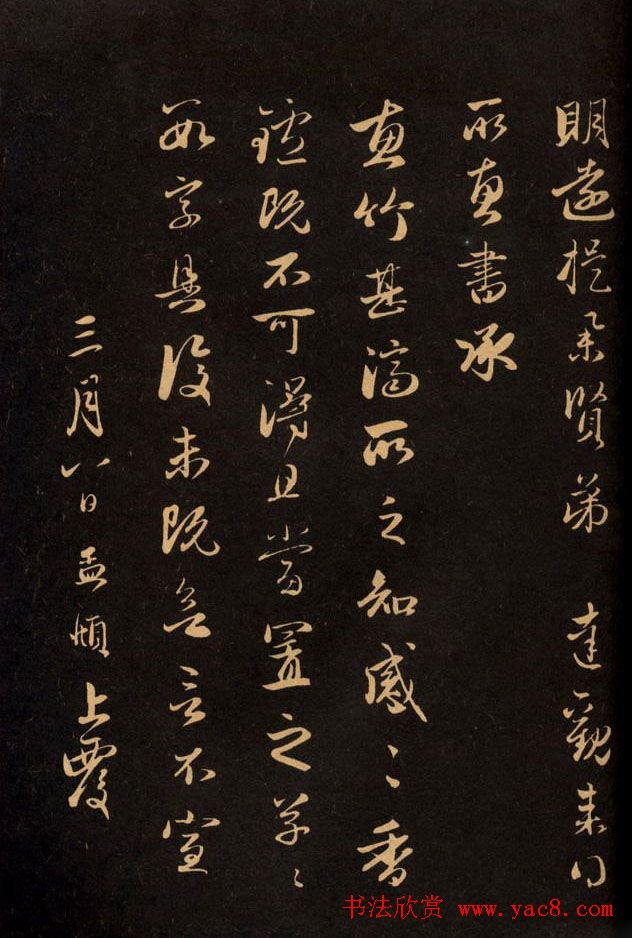 明遠提舉賢弟 達觀來
所惠書承
惠竹甚濟所乏知感〻香
鑪既不可得且當置之草〻
數字具復未既言不宣
三月八日孟頫上覆
书法欣赏 www.yac8.com